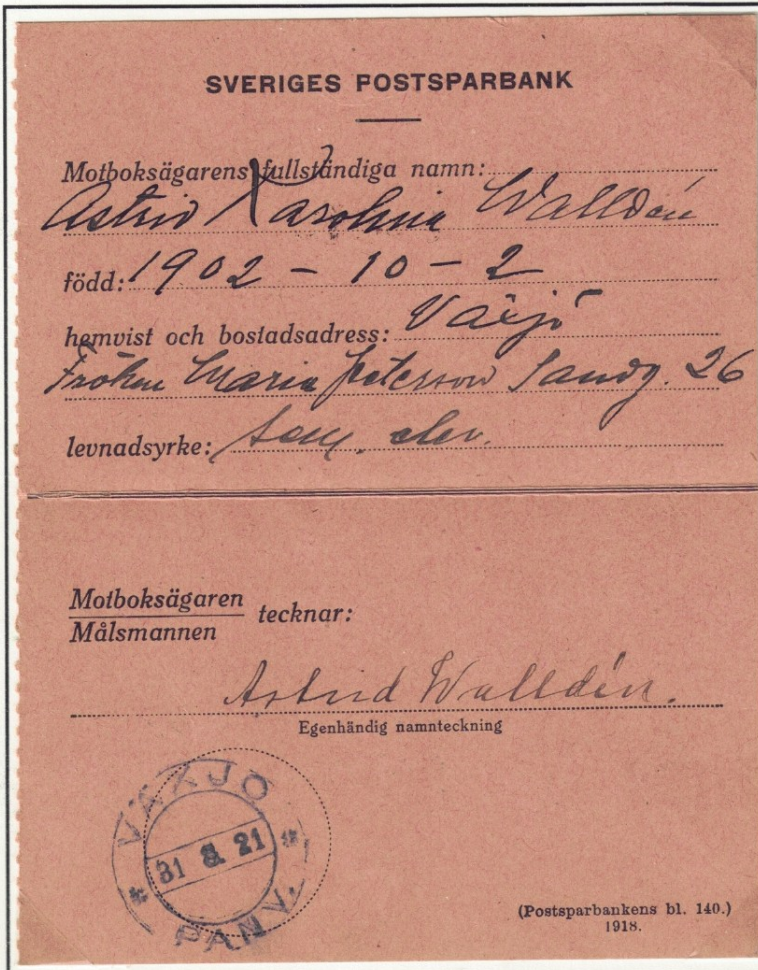 SVERIGES POSTSPARBANK
Motboksägarens fullständiga namn:
Astrid Karolina Walldén
född: 1902 - 10 - 2
hemvist och bostadsadress: Växjö
Fröken Maria Peterson Sandg. 26
levnadsyrke: sem. elev.
Motboksägaren
Målsmannen tecknar:
Astrid Walldén.
Egenhändig namnteckning
VÄXJÖ
31 8. 21
PANV.
(Postsparbankens bl. 140.)
1918.